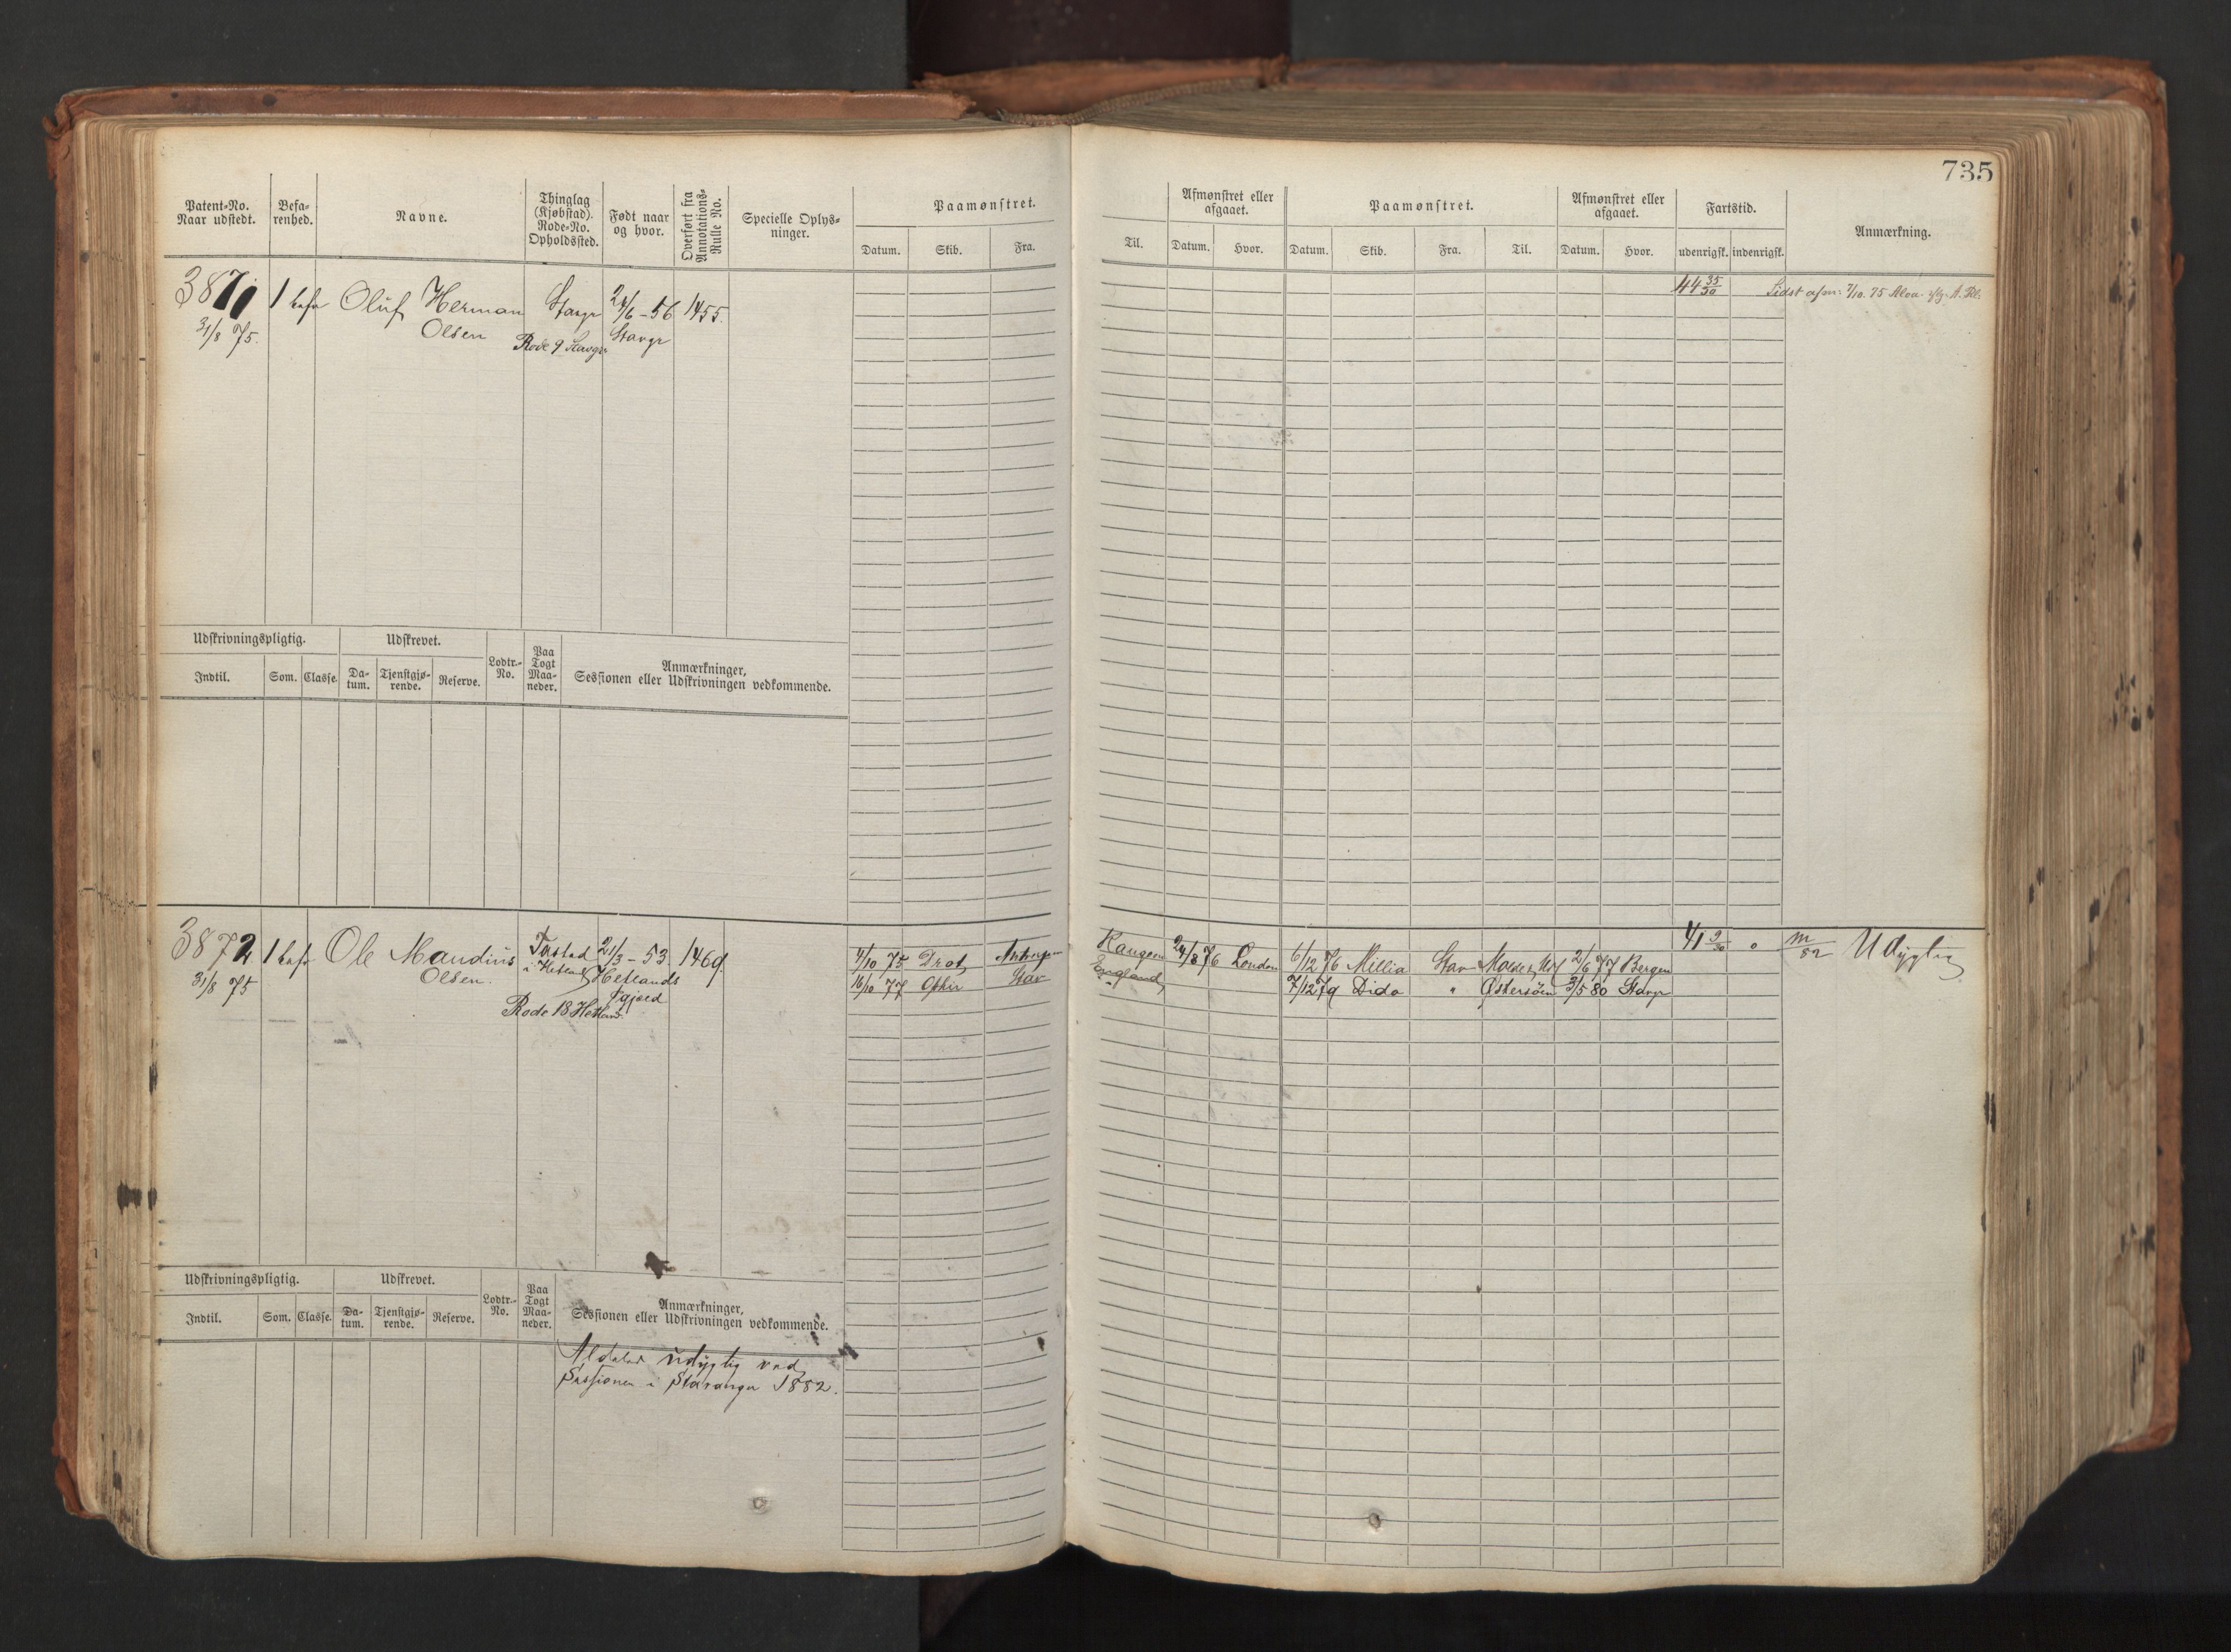 735
Patent-No.
Naar udstedt.
Befa-
renhed.
Navne.
Thinglag
(Kjøbstad).
Rode-No.
Opholdssted.
Født naar
og hvor.
Overført fra
Annotations-
Rulle No.
Specielle Oplys-
ninger.
Paamønstret.
Datum.
Skib.
Fra.
Til.
Afmønstret eller
afgaaet.
Datum.
Hvor.
Paamønstret.
Datum.
Skib.
Fra.
Til.
Afmønstret eller
afgaaet.
Datum.
Hvor.
Fartstid.
udenrigsk.
indenrigsk.
Anmærkning.
3871
31/8 75.
1 befa
Oluf Herman
Olsen
Stavgr
Rode 9 Stavgr
24/6 - 56
Stavgr
1455.
44 35/30
Sidst afm: 7/10. 75 Aloa
Udskrivningspligtig.
Udskrevet.
Indtil.
Som.
Classe.
Da-
tum.
Tjenstgjø-
rende.
Reserve.
Lodtr.-
No.
Paa
Togt
Maa-
neder.
Anmærkninger,
Sessionen eller Udskrivningen vedkommende.
3872
31/8 75
1 befa
Ole Maudius
Olsen.
Tastad
i Hetland
Rode 18 Hetland.
21/3 - 53
Hetlands
Pgjæld
1469.
4/10 75 Drot
16/10 77 Ophir Stav
England
24/8 76 London
6/12 76 Millia Stav 2/6 77 Bergen
7/12 79 Dido " Østersøen 3/5 80 Stavgr
41 9/30
0
m/82 Udygtig
Udskrivningspligtig.
Udskrevet.
Indtil.
Som.
Classe.
Da-
tum.
Tjenstgjø-
rende.
Reserve.
Lodtr.-
No.
Paa
Togt
Maa-
neder.
Anmærkninger,
Sessionen eller Udskrivningen vedkommende.
udygtig ved
Sessionen i Stavanger 1882.